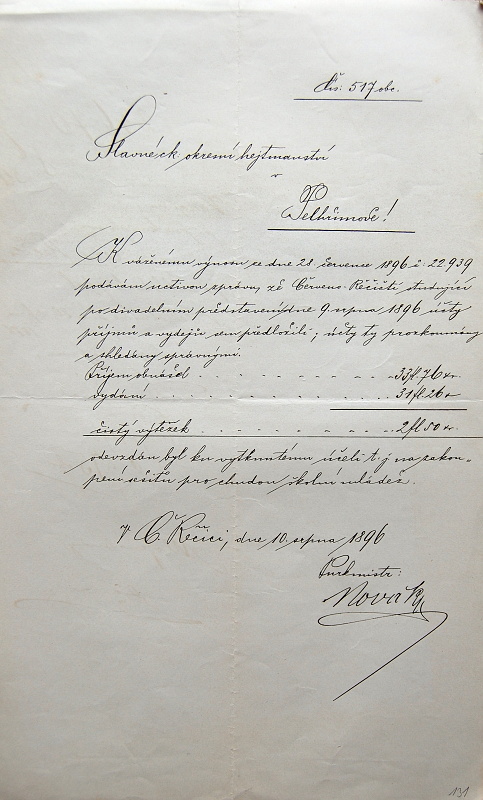 Čís: 517 obc.
Slavné c.k. okresní hejtmanství
v
Pelhřimově!
K váženému výnosu ze dne 28. července 1896 č: 22.939
podávám uctivou zprávu, že Červeno-Řečičtí studující
po divadelním představení dne 9. srpna 1896 účty
příjmů a vydajů sem předložili; účty ty prozkoumány
a shledány správnými.
Příjem obnášel . . . . . . . . . 33 fl. 76 kr.
vydání . . . . . . . . . . 31 fl. 26 kr
čistý výtěžek . . . . . . . . . 2 fl 50 kr.
odevzdán byl ku vytknutému účeli t.j. na zakou-
pení sešitů pro chudou školní mládež.
V Č. Řečici, dne 10. srpna 1896
Purkmistr:
Novák
131